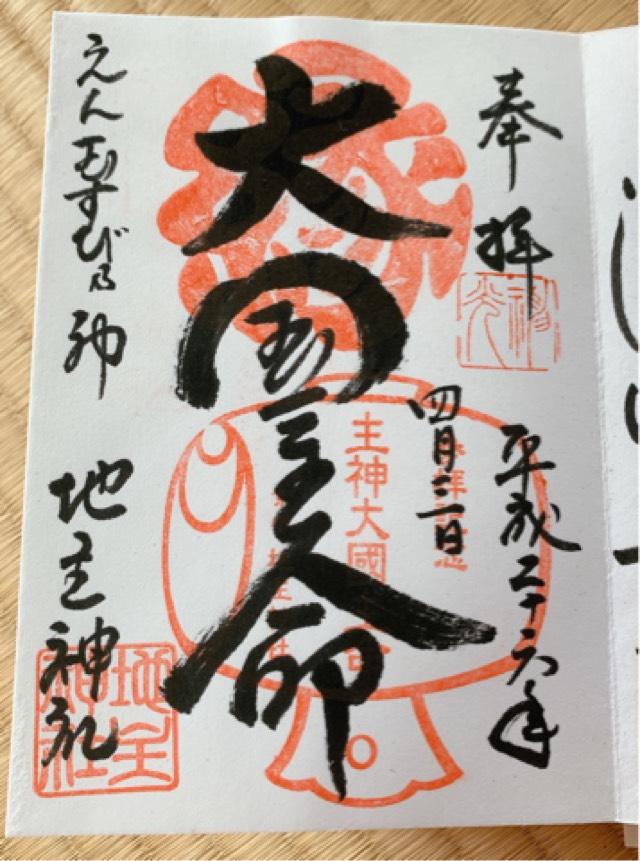 奉拝
平成二十六年
四月三日
大国主命
主神大國
えんむすびの神
地主神社
地主神社